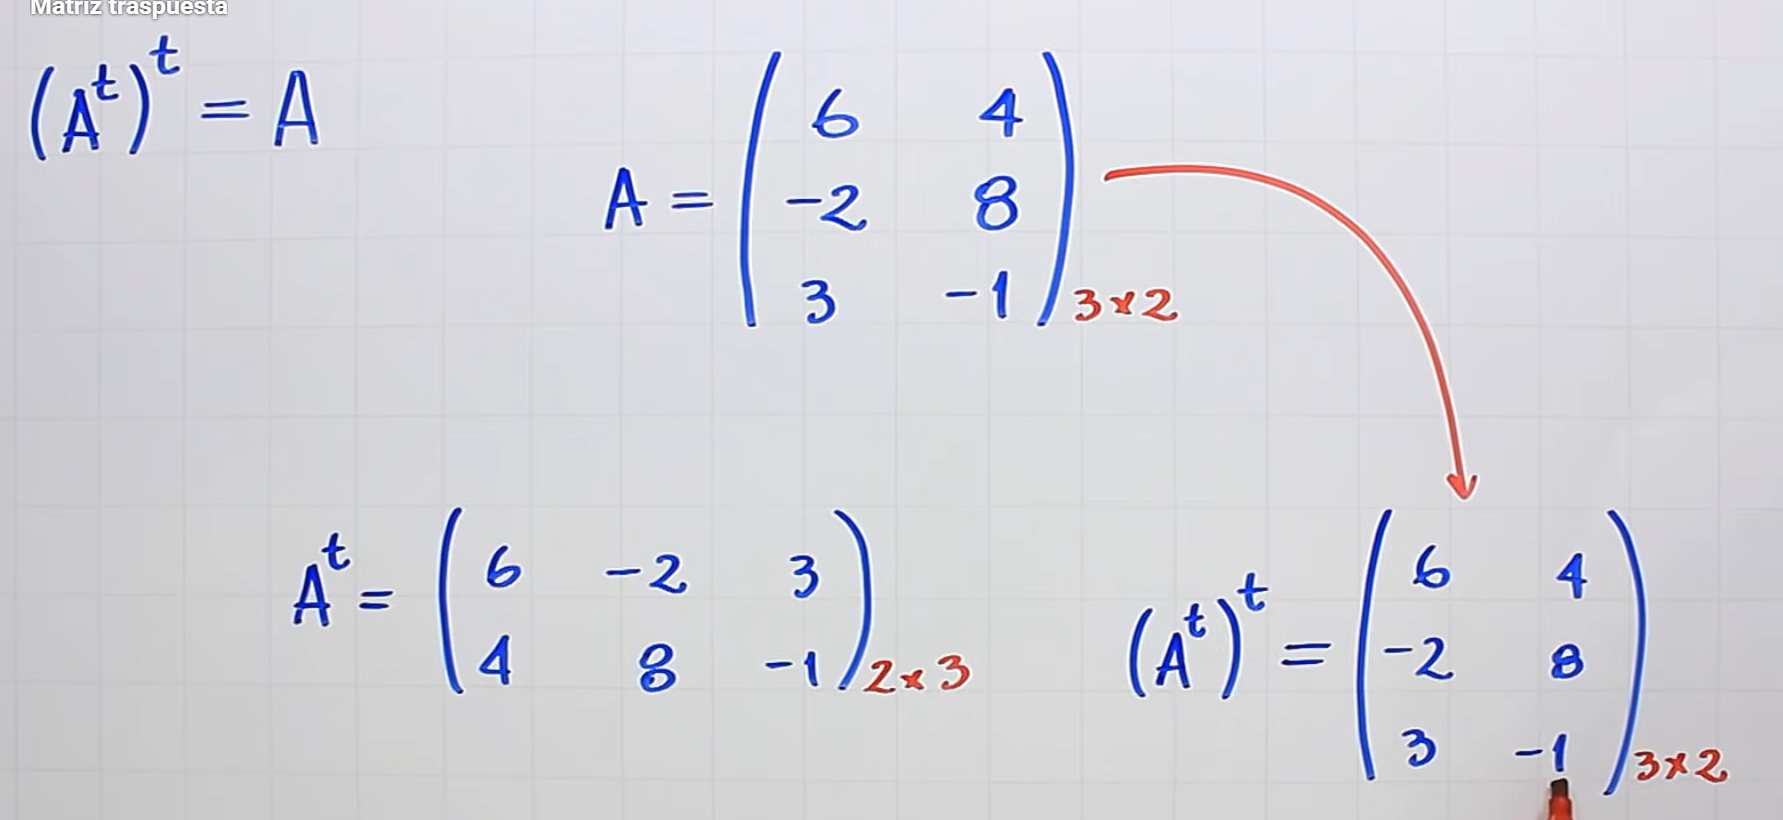 Matriz traspuesta
(Aᵗ)ᵗ = A
A = ( 6 4
-2 8
3 -1 ) 3×2
Aᵗ = ( 6 -2 3
4 8 -1 ) 2×3
(Aᵗ)ᵗ = ( 6 4
-2 8
3 -1 ) 3×2